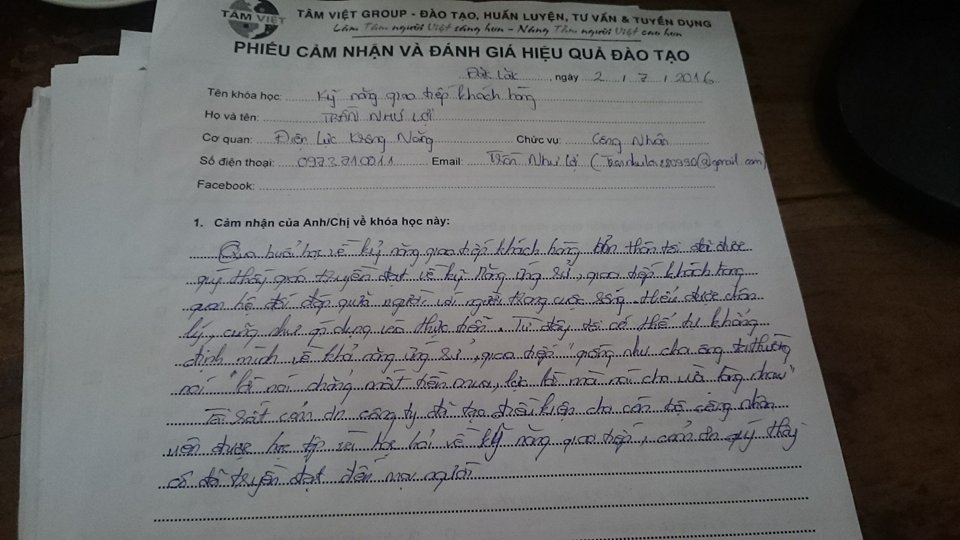 TÂM VIỆT
TÂM VIỆT GROUP - ĐÀO TẠO, HUẤN LUYỆN, TƯ VẤN & TUYỂN DỤNG
Làm Tâm người Việt sáng hơn - Nâng Tầm người Việt cao hơn
PHIẾU CẢM NHẬN VÀ ĐÁNH GIÁ HIỆU QUẢ ĐÀO TẠO
Đăk Lăk, ngày 2 / 7 / 2016
Tên khóa học: Kỹ năng giao tiếp khách hàng
Họ và tên: TRẦN NHƯ LỢI
Cơ quan: Điện Lực Krông Năng Chức vụ: Công Nhân
Số điện thoại: 0973710011 Email: Trần Như Lợi (Trannhuloi280990@gmail.com)
Facebook:
1. Cảm nhận của Anh/Chị về khóa học này:
Qua buổi học về kỷ năng giao tiếp khách hàng bản thân tôi đã được
quý thầy giáo truyền đạt về kỹ năng ứng sử, giao tiếp khách hàng
quan hệ đối đáp giữa người với người trong cuộc sống. Hiểu được chân
lý, cũng như áp dụng vào thực tiễn. Từ đây tôi có thể tự khẳng
định mình về khả năng ứng sử, giao tiếp "giống như cha ông ta thường
nói "lời nói chẳng mất tiền mua, lựa lời mà nói cho vừa lòng nhau"
Tôi rất cảm ơn công ty đã tạo điều kiện cho cán bộ công nhân
viên được học tập và học hỏi về kỹ năng giao tiếp, cảm ơn quý thầy
cô đã truyền đạt đến mọi người